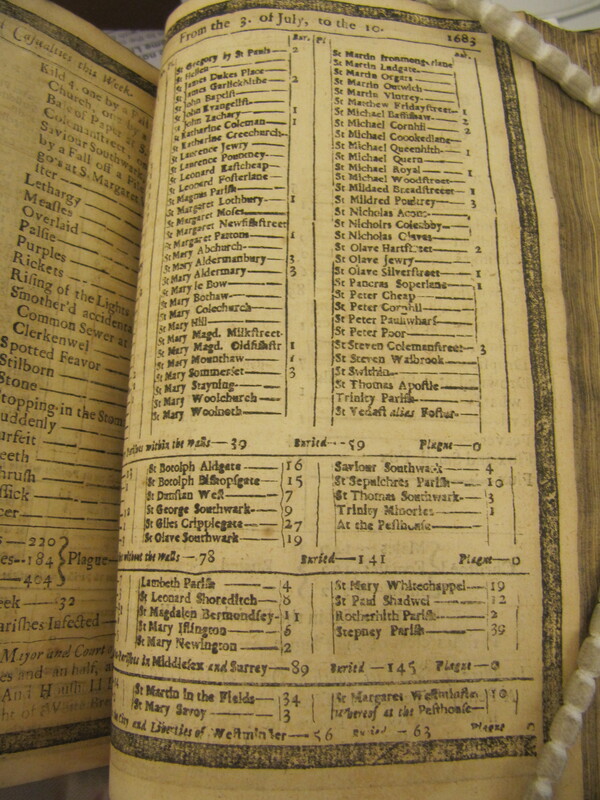 Casualties this Week.
Kild 4. one by a
Church, on
Bale of Paper at
Colmanstreet, on
Saviour Southwar
by a Fall off a
go at S. Margaret
Lethargy
Measles
Overlaid
Palsie
Purples
Rickets
Rising of the Lights
Smother'd accidenta
Common Sewer at
Clerkenwel
Spotted Feavor
Stilborn
Stone
topping in the Stom
uddenly
urfeit
eeth
hrush
issick
cer
220
184 } Plague
404
eek 32
arishes Infected
Mayor and Court
es and an half,
From the 3. of July, to the 10. 1683
Bur. Pl
St Gregory by St Pauls 2
St Hellen
St James Dukes Place
St James Garlickhithe 2
St John Baptist
St John Evangelist
St John Zachary 1
St Katharine Coleman 1
St Katharine Creechurch
St Laurence Jewry
St Laurence Pountney
St Leonard Eastcheap
St Leonard Fosterlane
St Magnus Parish
St Margaret Lothbury 1
St Margaret Moses
St Margaret Newfishstreet
St Margaret Pattons 1
St Mary Abchurch
St Mary Aldermanbury 3
St Mary Aldermary 3
St Mary le Bow
St Mary Bothaw
St Mary Colechurch
St Mary Hill
St Mary Magd. Milkstreet
St Mary Magd. Oldfishstr 1
St Mary Mounthaw 1
St Mary Sommerset 3
St Mary Stayning
St Mary Woolchurch
St Mary Woolnoth
St Martin Ironmongerlane
St Martin Ludgate
St Martin Orgars
St Martin Outwich
St Martin Vintrey
St Matthew Fridaystreet 1
St Michael Bassishaw 2
St Michael Cornhil 2
St Michael Crookedlane
St Michael Queenhith 1
St Michael Quern
St Michael Royal 1
St Michael Woodstreet
St Mildred Breadstreet 1
St Mildred Poultrey 3
St Nicholas Acons
St Nicholrs Coleabby
St Nicholas Olaves
St Olave Hartstreet 2
St Olave Jewry
St Olave Silverstreet 1
St Pancras Soperlane 1
St Peter Cheap
St Peter Cornhil
St Peter Paulswharf
St Peter Poor
St Steven Colemanstreet 3
St Steven Walbrook
St Swithin
St Thomas Apostle
Trinity Parish
St Vedast alias Foster
Parishes within the Walls 39 Buried 59 Plague 0
St Botolph Aldgate 16
St Botolph Bishopsgate 15
St Dunstan West 7
St George Southwark 9
St Giles Cripplegate 27
St Olave Southwark 19
Saviour Southwark 4
St Sepulchres Parish 10
St Thomas Southwark 3
Trinity Minories 1
At the Pesthouse
without the Walls 78 Buried 141 Plague 0
Lambeth Parish 4
St Leonard Shoreditch 8
St Magdalen Bermondsey 11
St Mary Islington 6
St Mary Newington 2
St Mary Whitechappel 19
St Paul Shadwel 12
Rotherhith Parish 2
Stepney Parish 39
Parishes in Middlesex and Surrey 89 Buried 145 Plague 0
St Martin in the Fields 34
St Mary Savoy 3
St Margaret Westminster 10
Whereof at the Pesthouse
City and Liberties of Westminster 56 Buried 63 Plague 0